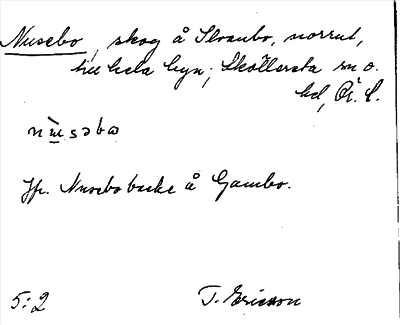 Nusebo, skog å Stranbo, norrut,
till hela byn; Sköllersta sn o.
hd, Ör. l.
nu̇̀səbω
Jfr. Nusebobacke å Gambo.
5:2 T. Ericsson